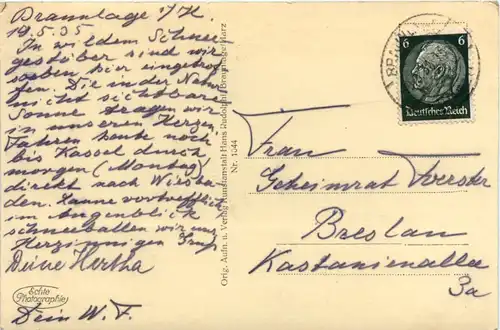 Braunlage i/H.
19.5.35
In wildem Schnee-
gestöber sind wir
soeben hier eingetrof-
fen. Die in der Natur
nicht sichtbare
Sonne tragen wir
in unseren Herzen
Fahren heute noch
bis Kassel durch,
morgen (Montag)
direkt nach Wiesba-
den. Laune vortrefflich
im Augenblick
schneeballen wir uns
Herzinnigen Gruß
Deine Hertha
Dein W. F.
Echte
Photographie
Orig. Aufn. u. Verlag Kunstanstalt Hans Rudolphi, Braunlage-Harz
Nr. 1344
6 6
Deutsches Reich
Frau
Geheimrat Foerster
Breslau
Kastanienallee
3a